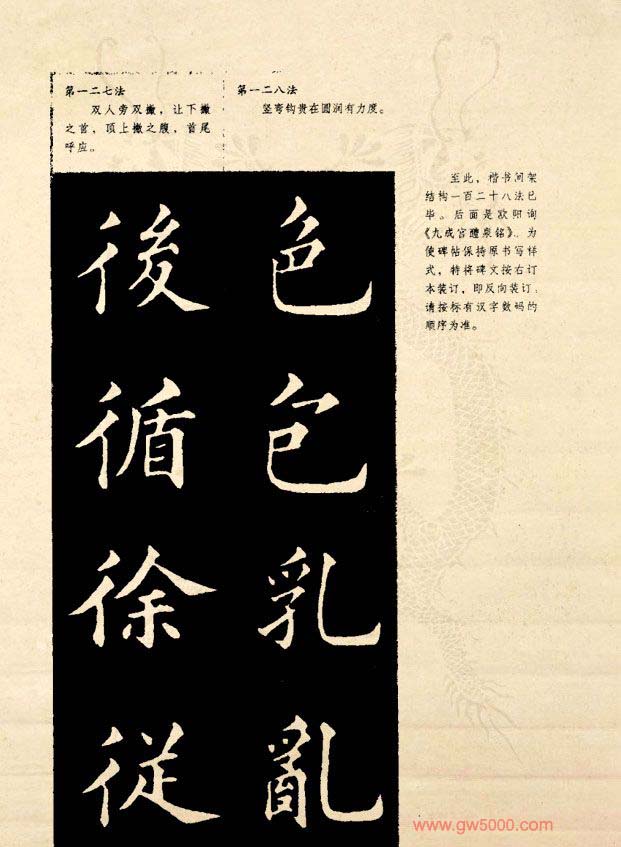 第一二七法
双人旁双撇，让下撇
之首，顶上撇之腹，首尾
呼应。
第一二八法
竖弯钩贵在圆润有力度。
後
循
徐
従
色
包
乳
亂
至此，楷书间架
结构一百二十八法已
毕。后面是欧阳询
《九成宫醴泉铭》。为
使碑帖保持原书写样
式，特将碑文按右订
本装订，即反向装订；
请按标有汉字数码的
顺序为准。
www.gw5000.com